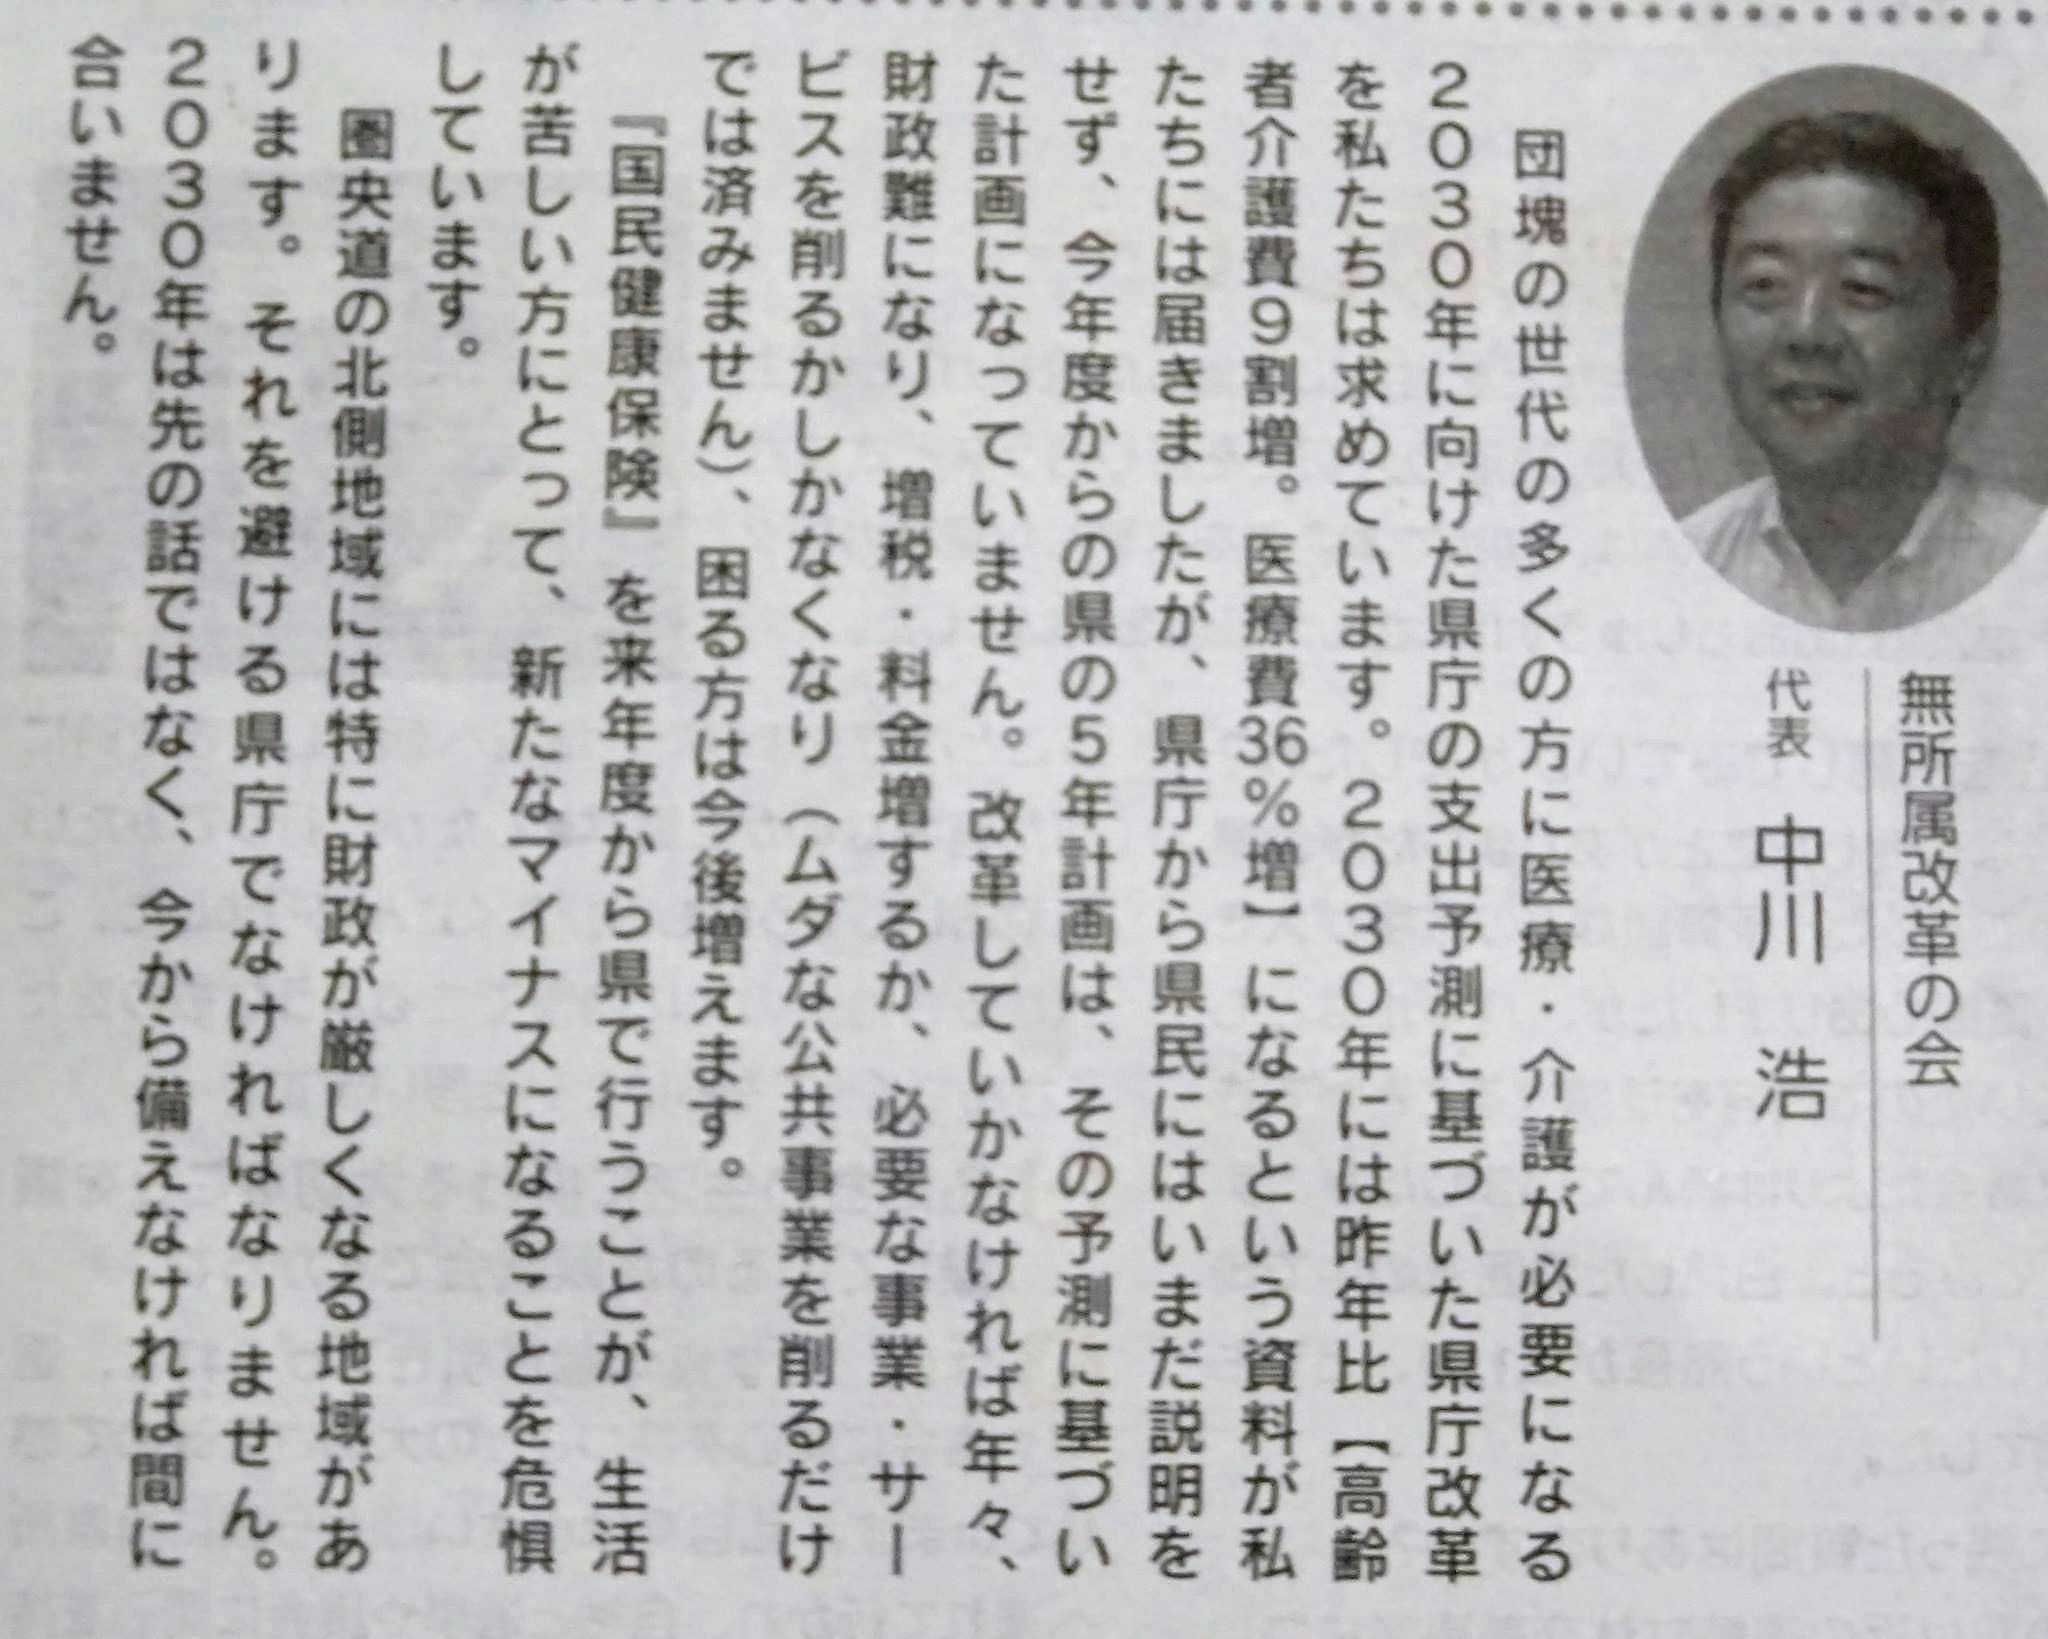 無所属改革の会
代表　中川　浩
団塊の世代の多くの方に医療・介護が必要になる
２０３０年に向けた県庁の支出予測に基づいた県庁改革
を私たちは求めています。２０３０年には昨年比【高齢
者介護費９割増。医療費36％増】になるという資料が私
たちには届きましたが、県庁から県民にはいまだ説明を
せず、今年度からの県の５年計画は、その予測に基づい
た計画になっていません。改革していかなければ年々、
財政難になり、増税・料金増するか、必要な事業・サー
ビスを削るかしかなくなり（ムダな公共事業を削るだけ
では済みません）、困る方は今後増えます。
『国民健康保険』を来年度から県で行うことが、生活
が苦しい方にとって、新たなマイナスになることを危惧
しています。
圏央道の北側地域には特に財政が厳しくなる地域があ
ります。それを避ける県庁でなければなりません。
２０３０年は先の話ではなく、今から備えなければ間に
合いません。